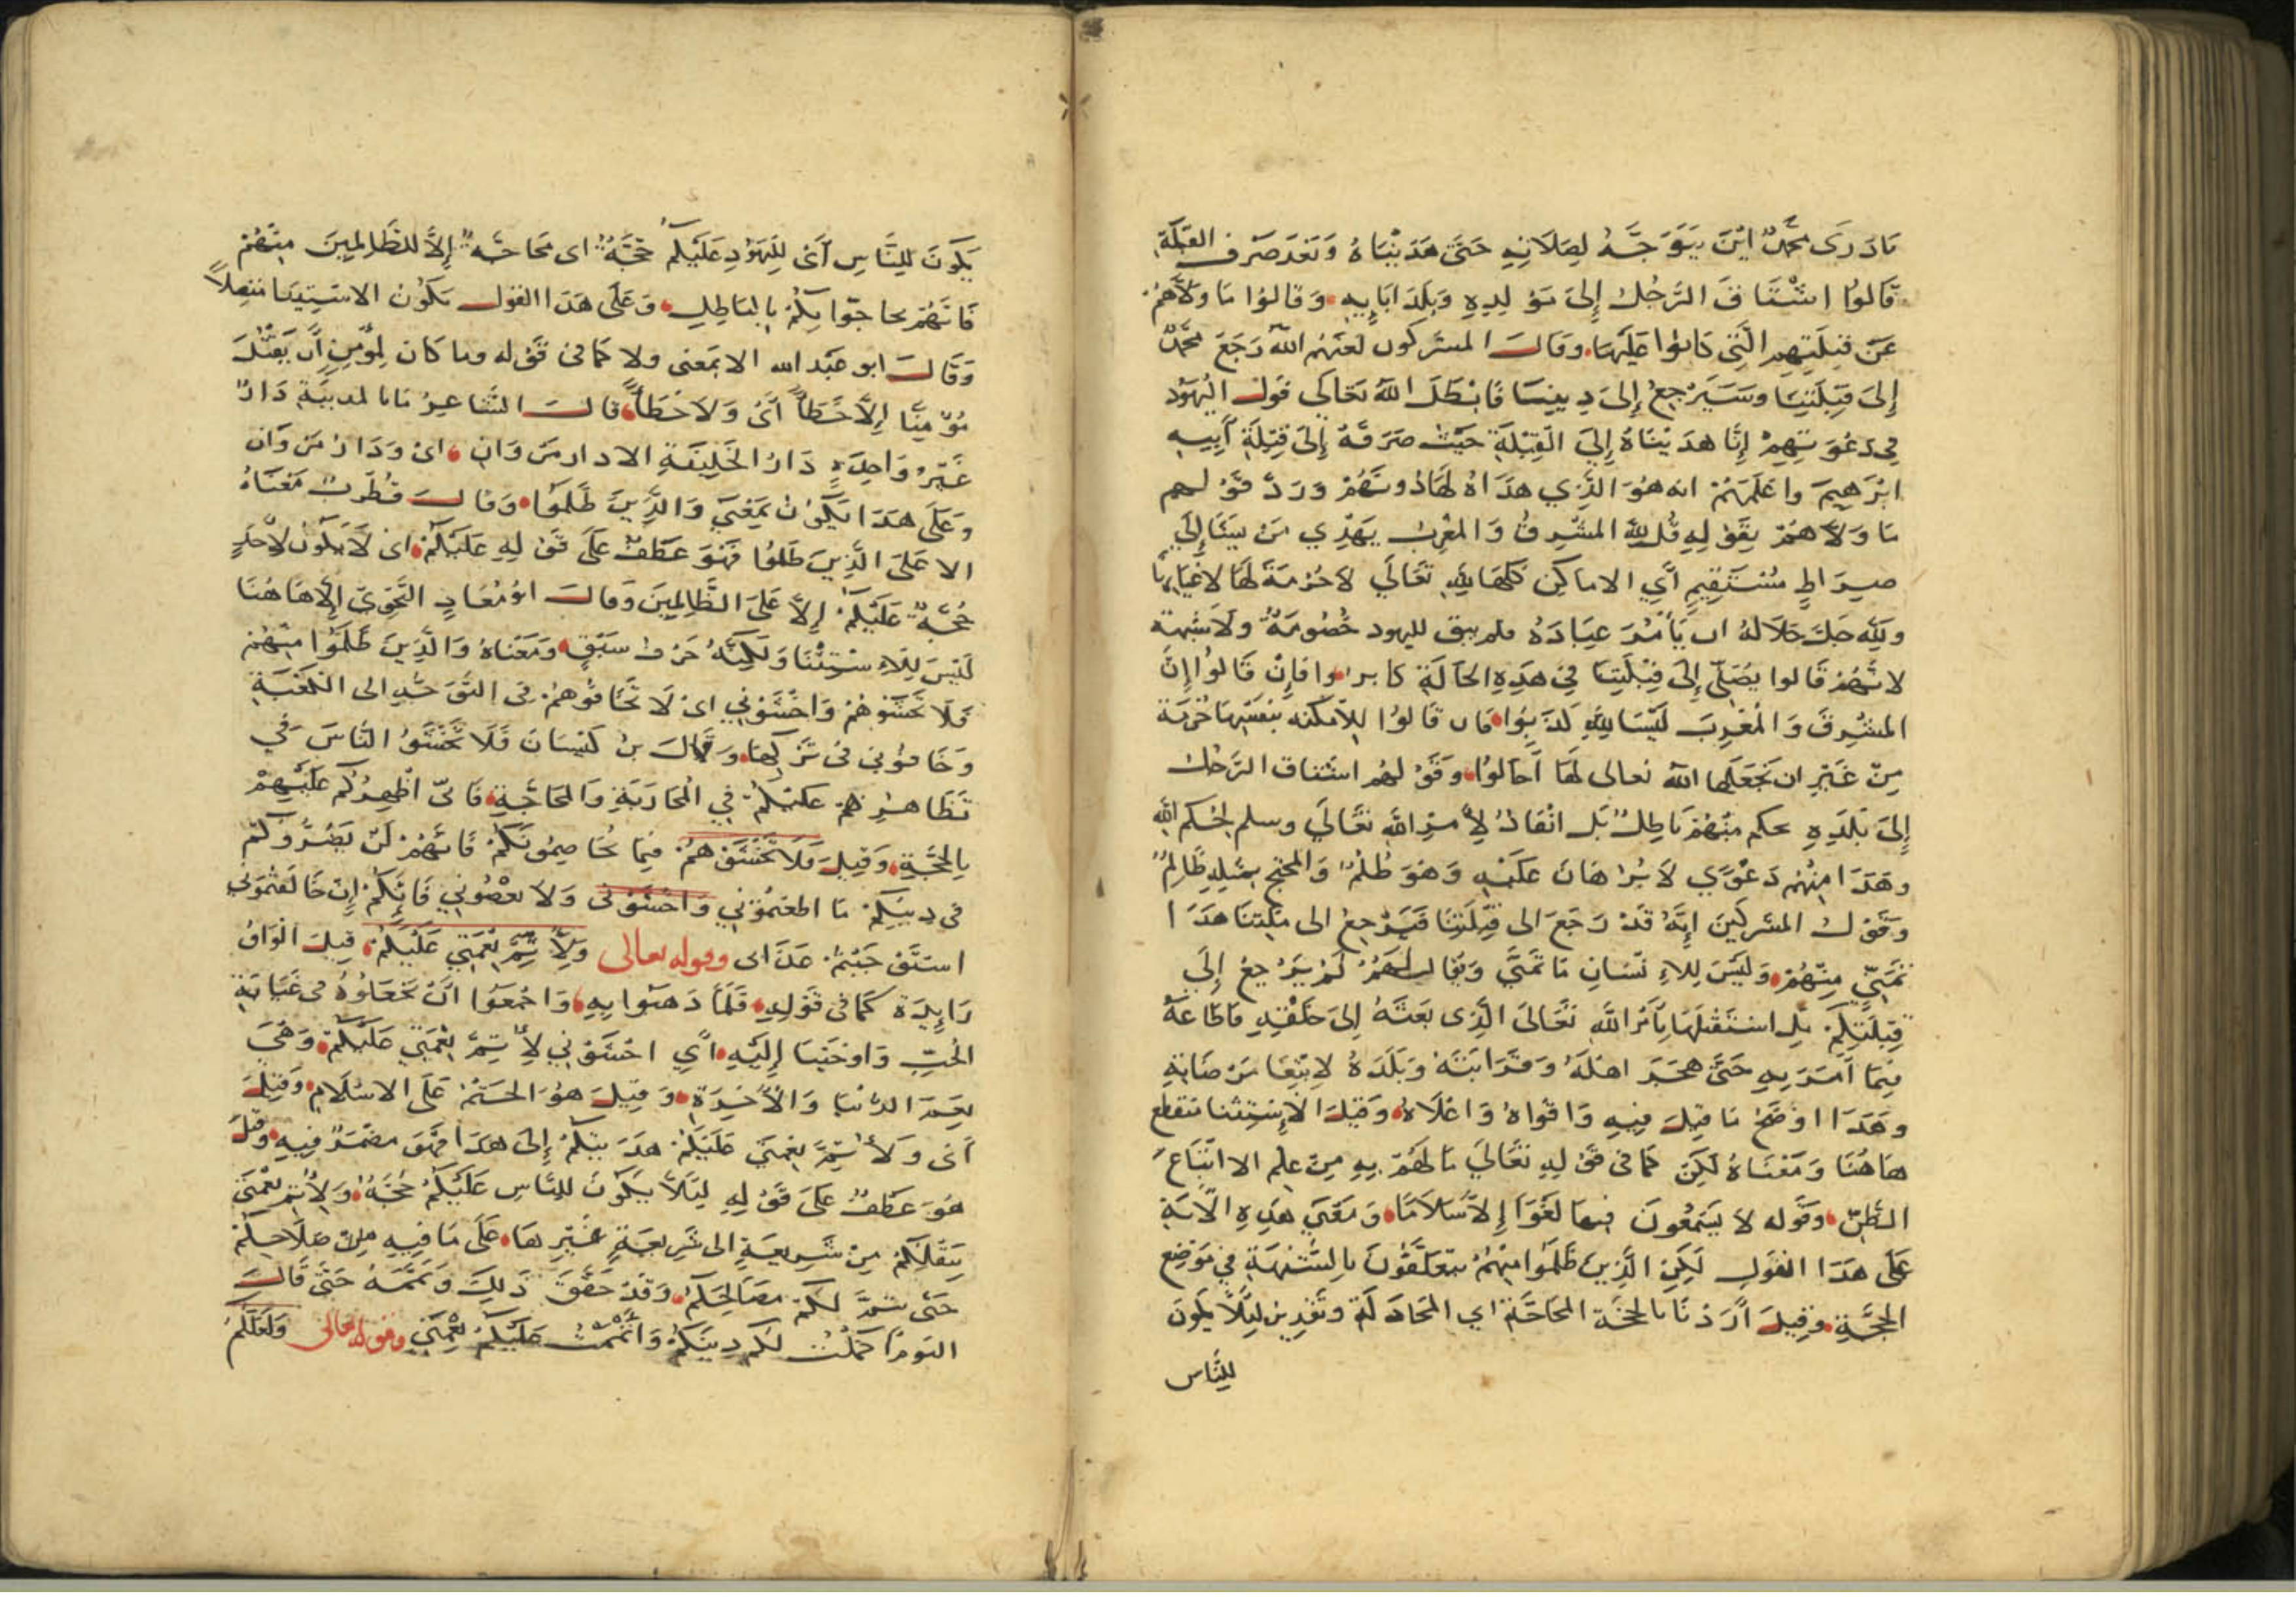 مَا دَرَى مُحَمَّدٌ ايْنَ يَتَوَجَّهُ لِصَلَاتِهِ حَتَّى هَدَيْنَاهُ وَبَعْدَ صَرْفِ القِبْلَةِ
قَالُوا اشْتَاقَ الرَّجُلُ إِلَى مَوْلِدِهِ وَبَلَدِ ابَايِهِ وَقَالُوا مَا وَلَّاهُمْ
عَنْ قِبْلَتِهِمِ الَّتِي كَانُوا عَلَيْهَا وقَالَ المشركون لعَنَهُم اللّٰه رَجَعَ مُحَمَّدٌ
إِلَى قِبْلَتِنَا وَسَيَرْجِعُ إِلَى دِينِنَا فَابْطَلَ اللّٰه تعَالَى قَولَ اليَهُود
فِي دَعْوَتِهِمْ إِنَّا هَدَيْنَاهُ إِلَى القِبْلَةِ حَيْثُ صَرَفَهُ إِلَى قِبْلَةِ أَبِيهِ
ابْرَهِيمَ واعْلَمَهُمْ انه هُوَ الَّذِي هَدَاهُ لَهَا دُونَهُمْ وَرَدَّ قَوْلهم
مَا وَلَّاهُمْ بِقَوْلِهِ قُل لِلّٰهِ المشْرِقُ وَالمغْرِبُ يَهْدِي مَنْ يَشَا إِلَى
صِرَاطٍ مُسْتَقِيمٍ أَي الاماكِن كلّهَا لِلّٰهِ تَعَالَى لا حُرْمَةَ لَهَا لِاعْيَانِهَا
ولِلّٰهِ جَلَّ جَلَالُهُ ان يَأْمُرَ عِبَادَهُ فلم يبق لليهود خُصُومَةٌ ولَا شبهة
لانَّهُمْ قَالوا يُصَلِّي إِلَى قِبْلَتِنَا فِي هَذِهِ الحَالَةِ كابروا فَإِنْ قَالُوا إِنَّ
المشْرِقَ وَالمغْرِبَ لَيْسَا لِلّٰهِ كَذَبُوا فان قَالُوا لِلْأَمكنه بنفسِهَا حُرْمَة
مِنْ غَيْرِ ان يَجْعَلَها اللّٰه تعالى لَهَا أَحَالُوا وَقَوْلهُم اشتاق الرَّجُلُ
إِلَى بَلَدِهِ حكم مِنْهُمْ بَاطِلٌ بَل انْقَادُ لِأَمْرِ اللّٰه تعَالَى وسلم لِحُكم اللّٰه
وهَذَا مِنْهُم دَعْوَى لَا بُرْهَانَ عَلَيْهِ وَهُوَ ظُلْمٌ وَالمحْتج بمثْلِهِ ظَالِمٌ
وَقَوْل المشركينَ إِنَّهُ قَدْ رَجَعَ الى قِبْلَتِنَا فَيَرْجِعُ الى مِلّتنَا هَذَا
تَمَنِّي مِنْهُمْ وَلَيْسَ لِلاِنْسَانِ مَا تَمَنَّى وَيُقَال لَهُمْ لَمْ يَرْجِعْ إِلَى
قِبْلَتِكُمْ بَلِ اسْتَقْبَلَهَا بِأَمْرِ اللَّهِ تَعَالَى الَّذِى بَعَثَهُ إِلَى خَلْقِهِ فَاطَاعَهُ
فِيمَا أَمَرَ بِهِ حَتَّى هَجَرَ اهْلَهُ وَقَرَابَتَهُ وَبَلَدَهُ لاِبْتِغَا مَرْضَاتِهِ
وهَذَا اوْضَحُ مَا قِيلَ فِيهِ وَاقْوَاهُ وَاعْلَاهُ وَقِيْلَ الْإِسْتِثنا منقطع
هَاهُنَا وَمَعْنَاهُ لَكِن كَمَا فى قَوْلِهِ تَعَالَى مَا لَهُمْ بِهِ مِنْ عِلْمٍ الا اتّبَاعَ
الظَّنِّ وقَوله لا يَسْمَعُونَ فيهَا لَغْوًا إِلَّا سَلَامًا وَمَعْنَي هَذِهِ الْآيَةِ
عَلَى هَذَا القَوْلِ لَكِنِ الَّذِينَ ظَلَمُوا مِنْهُمْ يتعَلَّقُونَ بِالشُّبْهَةِ في مَوْضِع
الحُجَّةِ وَقِيلَ أَرَدْنَا بالحجّة المحَاجّة اي المجَادَلَة وتقْدِيره لِئَلَّا يَكُونَ
لِلنَّاس
يَكُونَ لِلنَّاسِ أَىْ لِلْيَهُوْدِ عَلَيْكُمْ حُجَّةٌ اى محَاجَّةٌ إِلَّا للظَّالِمِينَ مِنْهُمْ
فَانَّهُمْ يحَاجّوا نكُمْ بِالْبَاطِلِ وَعَلَى هَذَا القول يَكُوْن الاستِثِنا متصِلاً
وَقَالَ ابو عَبْد الله الا بمَعْنى ولا كمَا فى قَوْله وما كَانَ لِمُؤْمِنٍ أَن يَقْتُلَ
مُؤْمِنًا إِلَّا خَطَأً أَىْ وَلَا خَطَأً قَالَ الشَّاعِرُ مَا بالمدينَةِ دَارٌ
غَيْرُ وَاحِدَةٍ دَارُ الخَلِيفَةِ الا دار مَرْوَانِ اى وَدَارُ مَرْوَان
وَعَلَى هَذَا يَكُوْن بمَعْنَى وَالَّذِينَ ظَلَمُوا وَقَالَ قُطْرُبٌ مَعْنَاهُ
الا عَلَى الَّذِينَ ظَلَمُوا فَهُوَ عَطْفٌ عَلَى قَوْلِهِ عَلَيْكُمْ اى لَا يَكُوْن لِاَحَدٍ
حُجَّةٌ عَلَيْكُمْ إِلَّا عَلَى الظَّالِمِينَ وَقَالَ ابُو مُعَاذٍ النَّحْوِىّ إِلَّا هَاهُنَا
لَيْسَ لِلاِسْتِثْنَا وَلَكِنَّهُ حَرْف سَبَقٍ وَمَعْنَاهُ وَالَّذِينَ ظَلَمُوا مِنْهُمْ
فَلَا تَخْشَوْهُمْ وَاخْشَوْنِي اىْ لَا تَخَافُوْهُمْ فى التَّوَجُّهِ الى الكَعْبَةِ
وَخَافُوْنِي فى تَرْكِهَا وَقَالَ بنُ كَيْسَانَ فَلَا تَخْشَوُا النَّاسَ فِي
تَظَاهُرِهِمْ عَلَيْكُمْ فِي الْمحَارَبَةِ وَالمحَاجَّةِ فَانّى اُظْهِرُكُم عَلَيْهِمْ
بِالحجَّةِ وَقِيلَ فَلَا تَخْشَوْهُمْ فِيمَا يُخَاصِمُونَكُمْ فَانَّهُمْ لَنْ يَضُرُّوكُمْ
فى دِينِكُمْ مَا اطَعْتمُوْنِي وَاخْشَوْنى وَلَا تعْصُونِي فَانّكُمْ إِنْ خَالَفْتُمُونِي
اسْتَوْجَبْتُمْ عَذَابى وقوله تعالى وَلِأُتِمَّ نِعْمَتِي عَلَيْكُمْ قِيلَ الْوَاوُ
زَايِدَة كَمَا فى قَوْلِهِ فَلَمَّا ذَهَبُوا بِهِ وَاجْمَعُوا انْ يَجْعَلُوْهُ في غَيَابَةِ
الجُبّ وَاوْحَيْنَا إِلَيْهِ أَيِ اخْشَوْنِي لِأُتِمَّ نِعْمَتِي عَلَيْكُمْ وَهِيَ
نِعَمُ الدُّنْيَا وَالْاَخِرَةِ وَقِيلَ هُوَ الحَتْمُ عَلَى الاسْلَامِ وَقِيْلَ
أَىْ وَلِأُتِمَّ نِعْمَتِي عَلَيْكُمْ هَدَيْتُكُمْ إِلَى هَذَا فَهُوَ مضْمَرٌ فِيهِ وَقِيْلَ
هُوَ عَطْفٌ عَلَى قَوْلِهِ لِئَلَّا يَكُوْنَ لِلنَّاسِ عَلَيْكُمْ حُجَّةٌ وَلِأُتِمَّ نِعْمَتِي
بِنَقْلِكُمْ مِنْ شَرِيعَةٍ الى شَرِيعَةٍ غَيْرِهَا عَلَى مَا فِيهِ مِنْ صَلَاحِكُمْ
حَتَّى تتمَّ لَكُمْ مصَالِحُكُمْ وَقَدْ حَقَّقَ ذَلِكَ وَتَمَّمَهُ حَتَّى قَالَ
اليَوْمَ اكمَلْتُ لَكُم دِينَكُمْ وَاَتْمَمْتُ عَلَيْكُمْ نِعْمَتِي وقوله تعالى وَلَعَلَّكُمْ